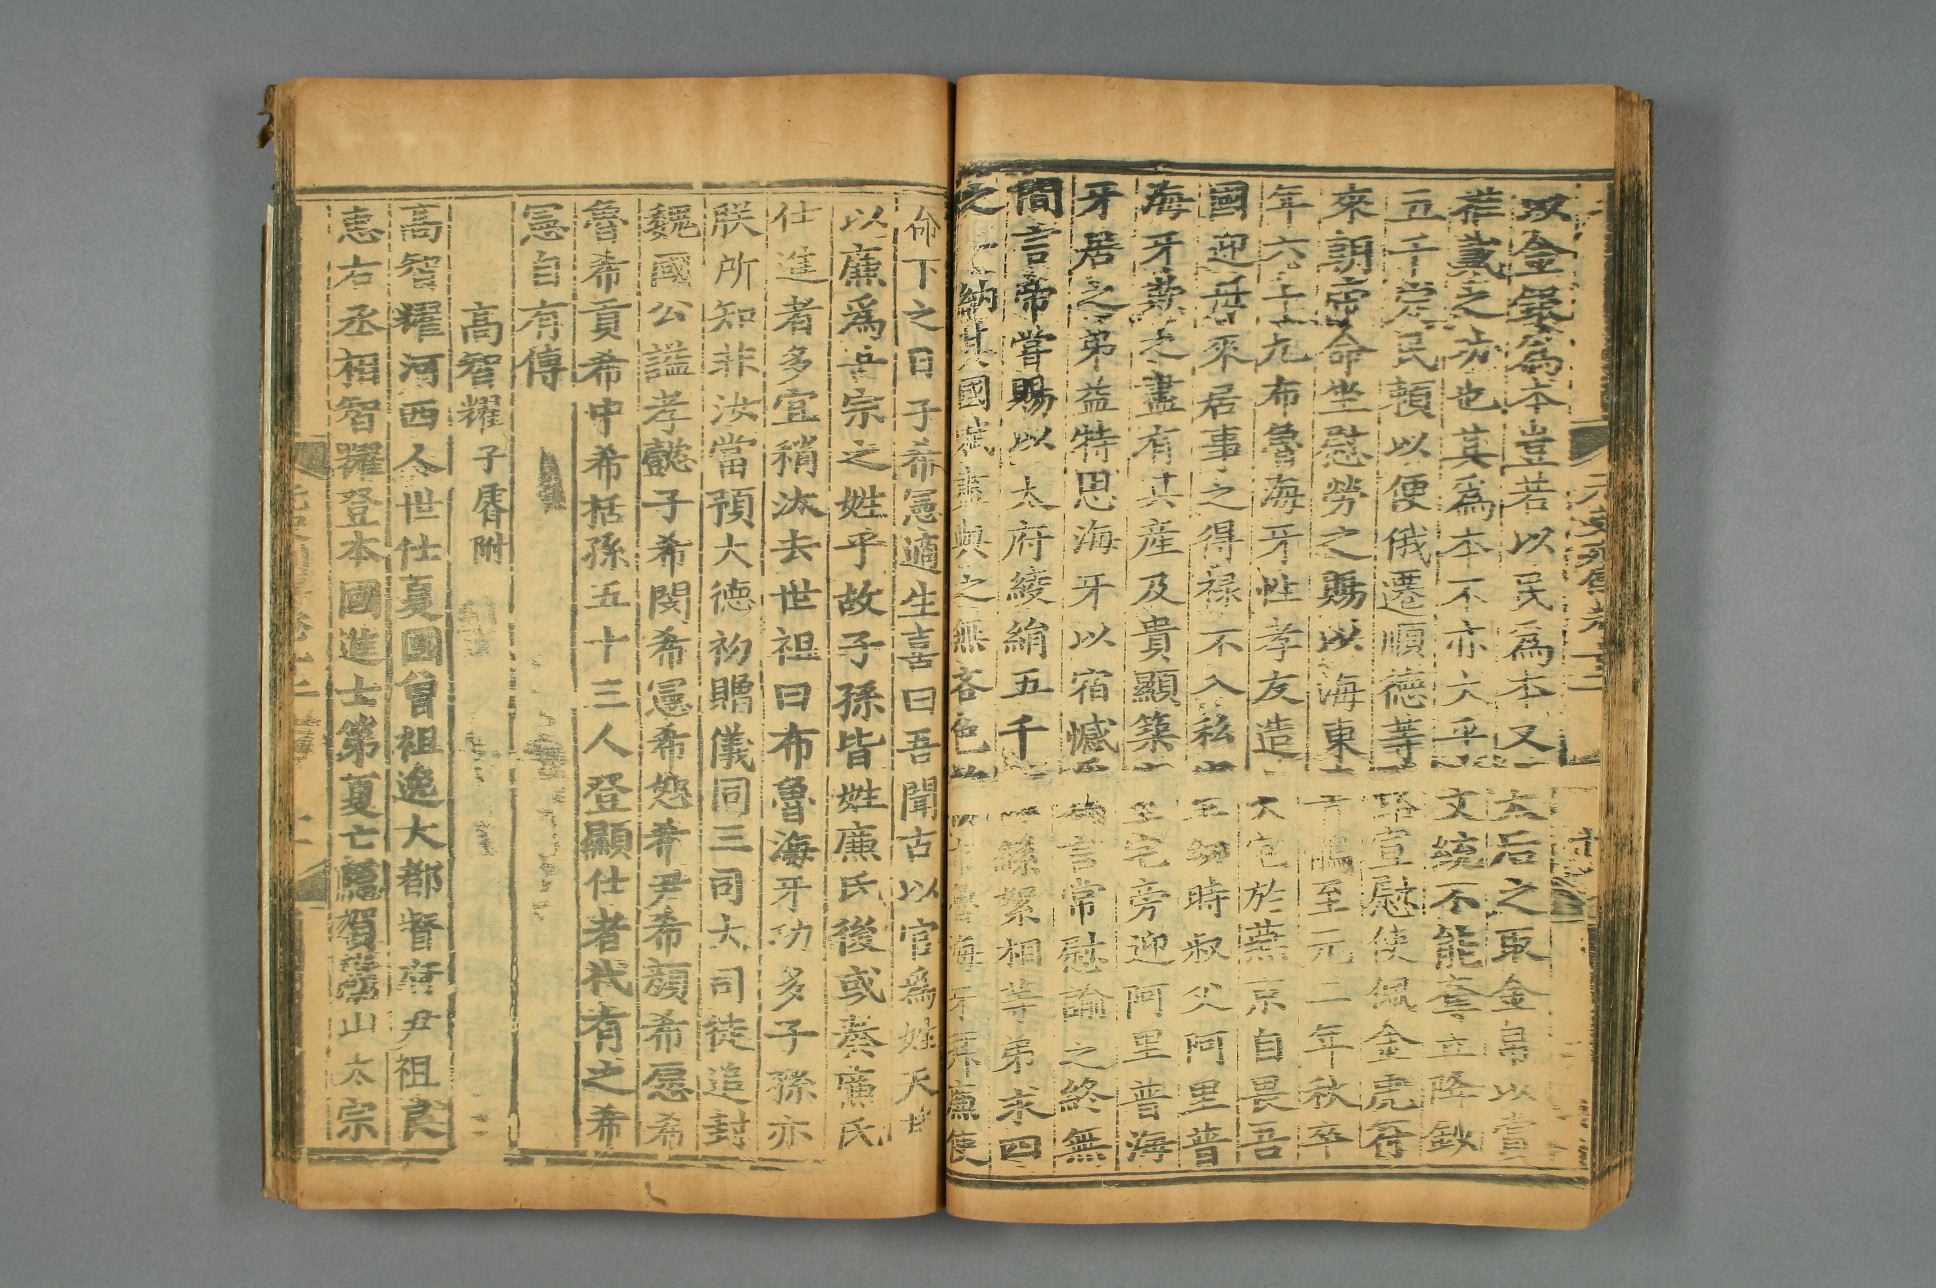 以金銀爲本豈若以民爲本又
太后之取金帛以賞
推戴之功也其爲本不亦大乎
文統不能奪立降鈔
五千定民賴以便俄遷順德等
路宣慰使佩金虎符
來朝帝命坐慰勞之賜以海東
至元二年秋卒
年六十九布魯海牙性孝友造
大宅於燕京自畏吾
國迎母來居事之得祿不入私
幼時叔父阿里普
海牙欺之盡有其産及貴顯築
宅旁迎阿里普海
牙居之弟益特思海牙以宿憾
爲言常慰諭之終無
間言帝嘗賜以太府綾絹五千
絲絮相等弟求四
之一納其國賦盡與之無吝色
布魯海牙拜廉使
命下之日子希憲適生喜曰吾聞古以官爲姓天
以廉爲吾宗之姓乎故子孫皆姓廉氏後或奏廉氏
仕進者多宜稍汰去世祖曰布魯海牙功多子孫亦
朕所知非汝當預大德初贈儀同三司大司徒追封
魏國公謚孝懿子希閔希憲希恕希尹希顔希愿希
魯希貢希中希括孫五十三人登顯仕者代有之希
憲自有傳
高智耀 子睿附
高智耀河西人世仕夏國曾祖逸大都督府尹祖良
惠右丞相智耀登本國進士第夏亡隱賀蘭山太宗